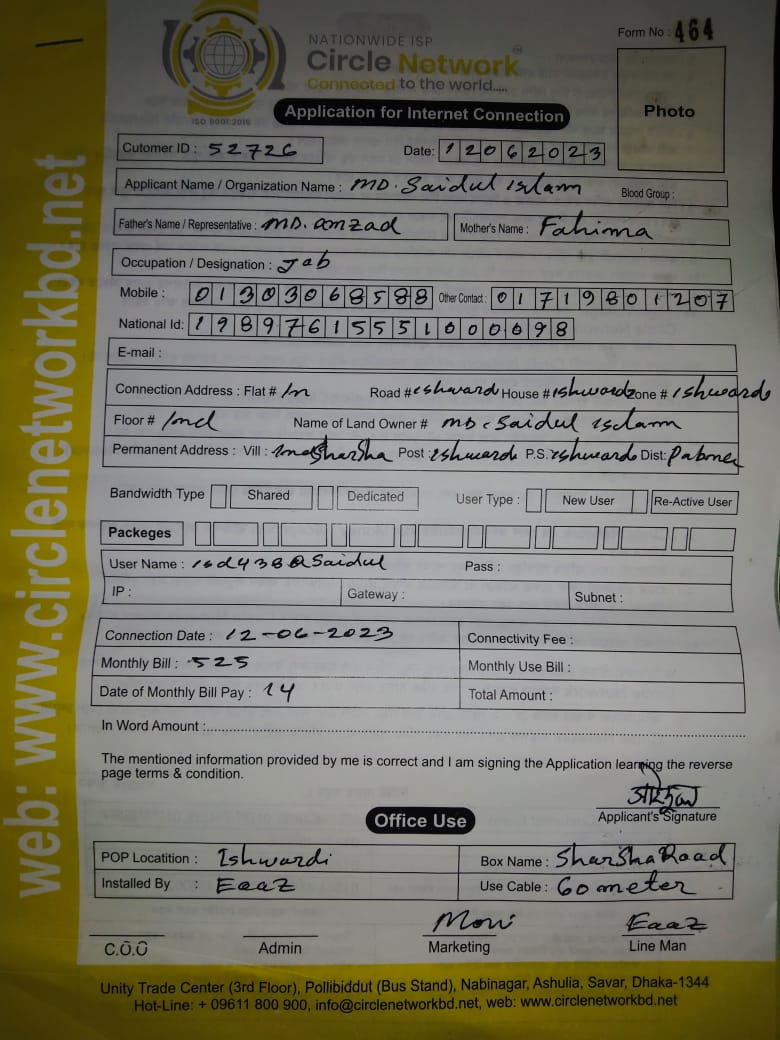 NATIONWIDE ISP
Circle Network
Connected to the world.....
ISO 9001:2015
Form No : 464
Application for Internet Connection
Photo
Cutomer ID : 52726
Date: 12062023
Applicant Name / Organization Name : MD. Saidul islam
Blood Group :
Father's Name / Representative : MD. amzad
Mother's Name : Fahima
Occupation / Designation : Jab
Mobile : 01303068588 Other Contact : 01719801207
National Id: 19897615551000698
E-mail :
Connection Address : Flat # Road # ishwardi House # ishwardi zone # ishwardi
Floor # Name of Land Owner # MD. Saidul islam
Permanent Address : Vill : Post : ishwardi P.S. ishwardi Dist: Pabna
Bandwidth Type Shared Dedicated User Type : New User Re-Active User
Packeges
User Name : isd438@Saidul Pass :
IP : Gateway : Subnet :
Connection Date : 12-06-2023 Connectivity Fee :
Monthly Bill : 525 Monthly Use Bill :
Date of Monthly Bill Pay : 14 Total Amount :
In Word Amount :
The mentioned information provided by me is correct and I am signing the Application learning the reverse
page terms & condition.
Applicant's Signature
Office Use
POP Locatition : Ishwardi Box Name : Sharsha Road
Installed By : Eaaz Use Cable : 60 meter
Moni Eaaz
C.O.O Admin Marketing Line Man
Unity Trade Center (3rd Floor), Pollibiddut (Bus Stand), Nabinagar, Ashulia, Savar, Dhaka-1344
Hot-Line: + 09611 800 900, info@circlenetworkbd.net, web: www.circlenetworkbd.net
web: www.circlenetworkbd.net